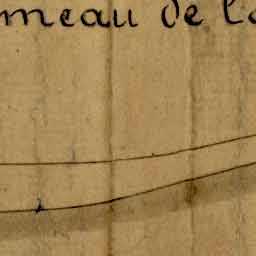 meau de la